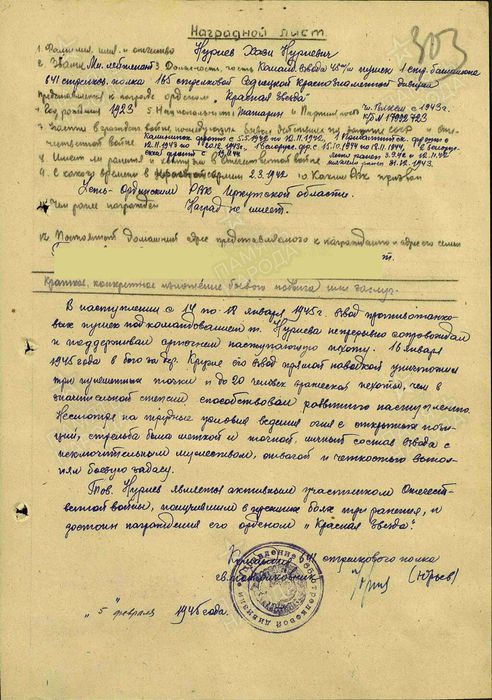 303
Наградной лист
1. Фамилия, имя и отчество Нуриев Хаби Нуриевич
2. Звание Мл. лейтенант 3 Должность, часть Команд. взвода 45 м/м пушек 1 стр. батальона
841 стрелков. полка 185 стрелковой Седлецкой Краснознаменной дивизии
Представляется к награде орденом "Красная Звезда"
4. Год рождения 1923 5 Национальность татарин 6 Партийность чл. ВКП(б) с 1943 г.
к/б № 17998423
7. Участие в гражданской войне, последующих боевых действиях по защите СССР и оте-
чественной войне
8. Имеет ли ранения и контузии в Отечественной войне легко ранен 3.9.42 и 12.11.42
9. С какого времени в Красной армии 2.3.1942 10 Каким РВК призван
Усть-Ордынским РВК Иркутской области.
11. Чем ранее награжден Наград не имеет.
12. Постоянный домашний адрес представляемого к награждению и адрес его семьи
Краткое, конкретное изложение боевого подвига или заслуг.
В наступлении с 14 по 18 января 1945 г. взвод противотанко-
вых пушек под командованием т. Нуриева непрерывно сопровождал
и поддерживал огнем наступающую пехоту. 16 января
1945 года в бою за дер. его взвод прямой наводкой уничтожил
три пулеметных точки и до 20 человек вражеской пехоты, чем в
значительной степени способствовал развитию наступления.
Несмотря на трудные условия ведения огня с открытых пози-
ций, стрельба была меткой и точной, личный состав взвода с
исключительным мужеством, отвагой и четкостью выпол-
нял боевую задачу.
Тов. Нуриев является активным участником Отечест-
венной войны, получившим в боях три ранения, и
достоин награждения его орденом "Красная Звезда".
Командир 841 стрелкового полка
подполковник (Юрьев)
"5" февраля 1945 года.
ПАМЯТЬ НАРОДА